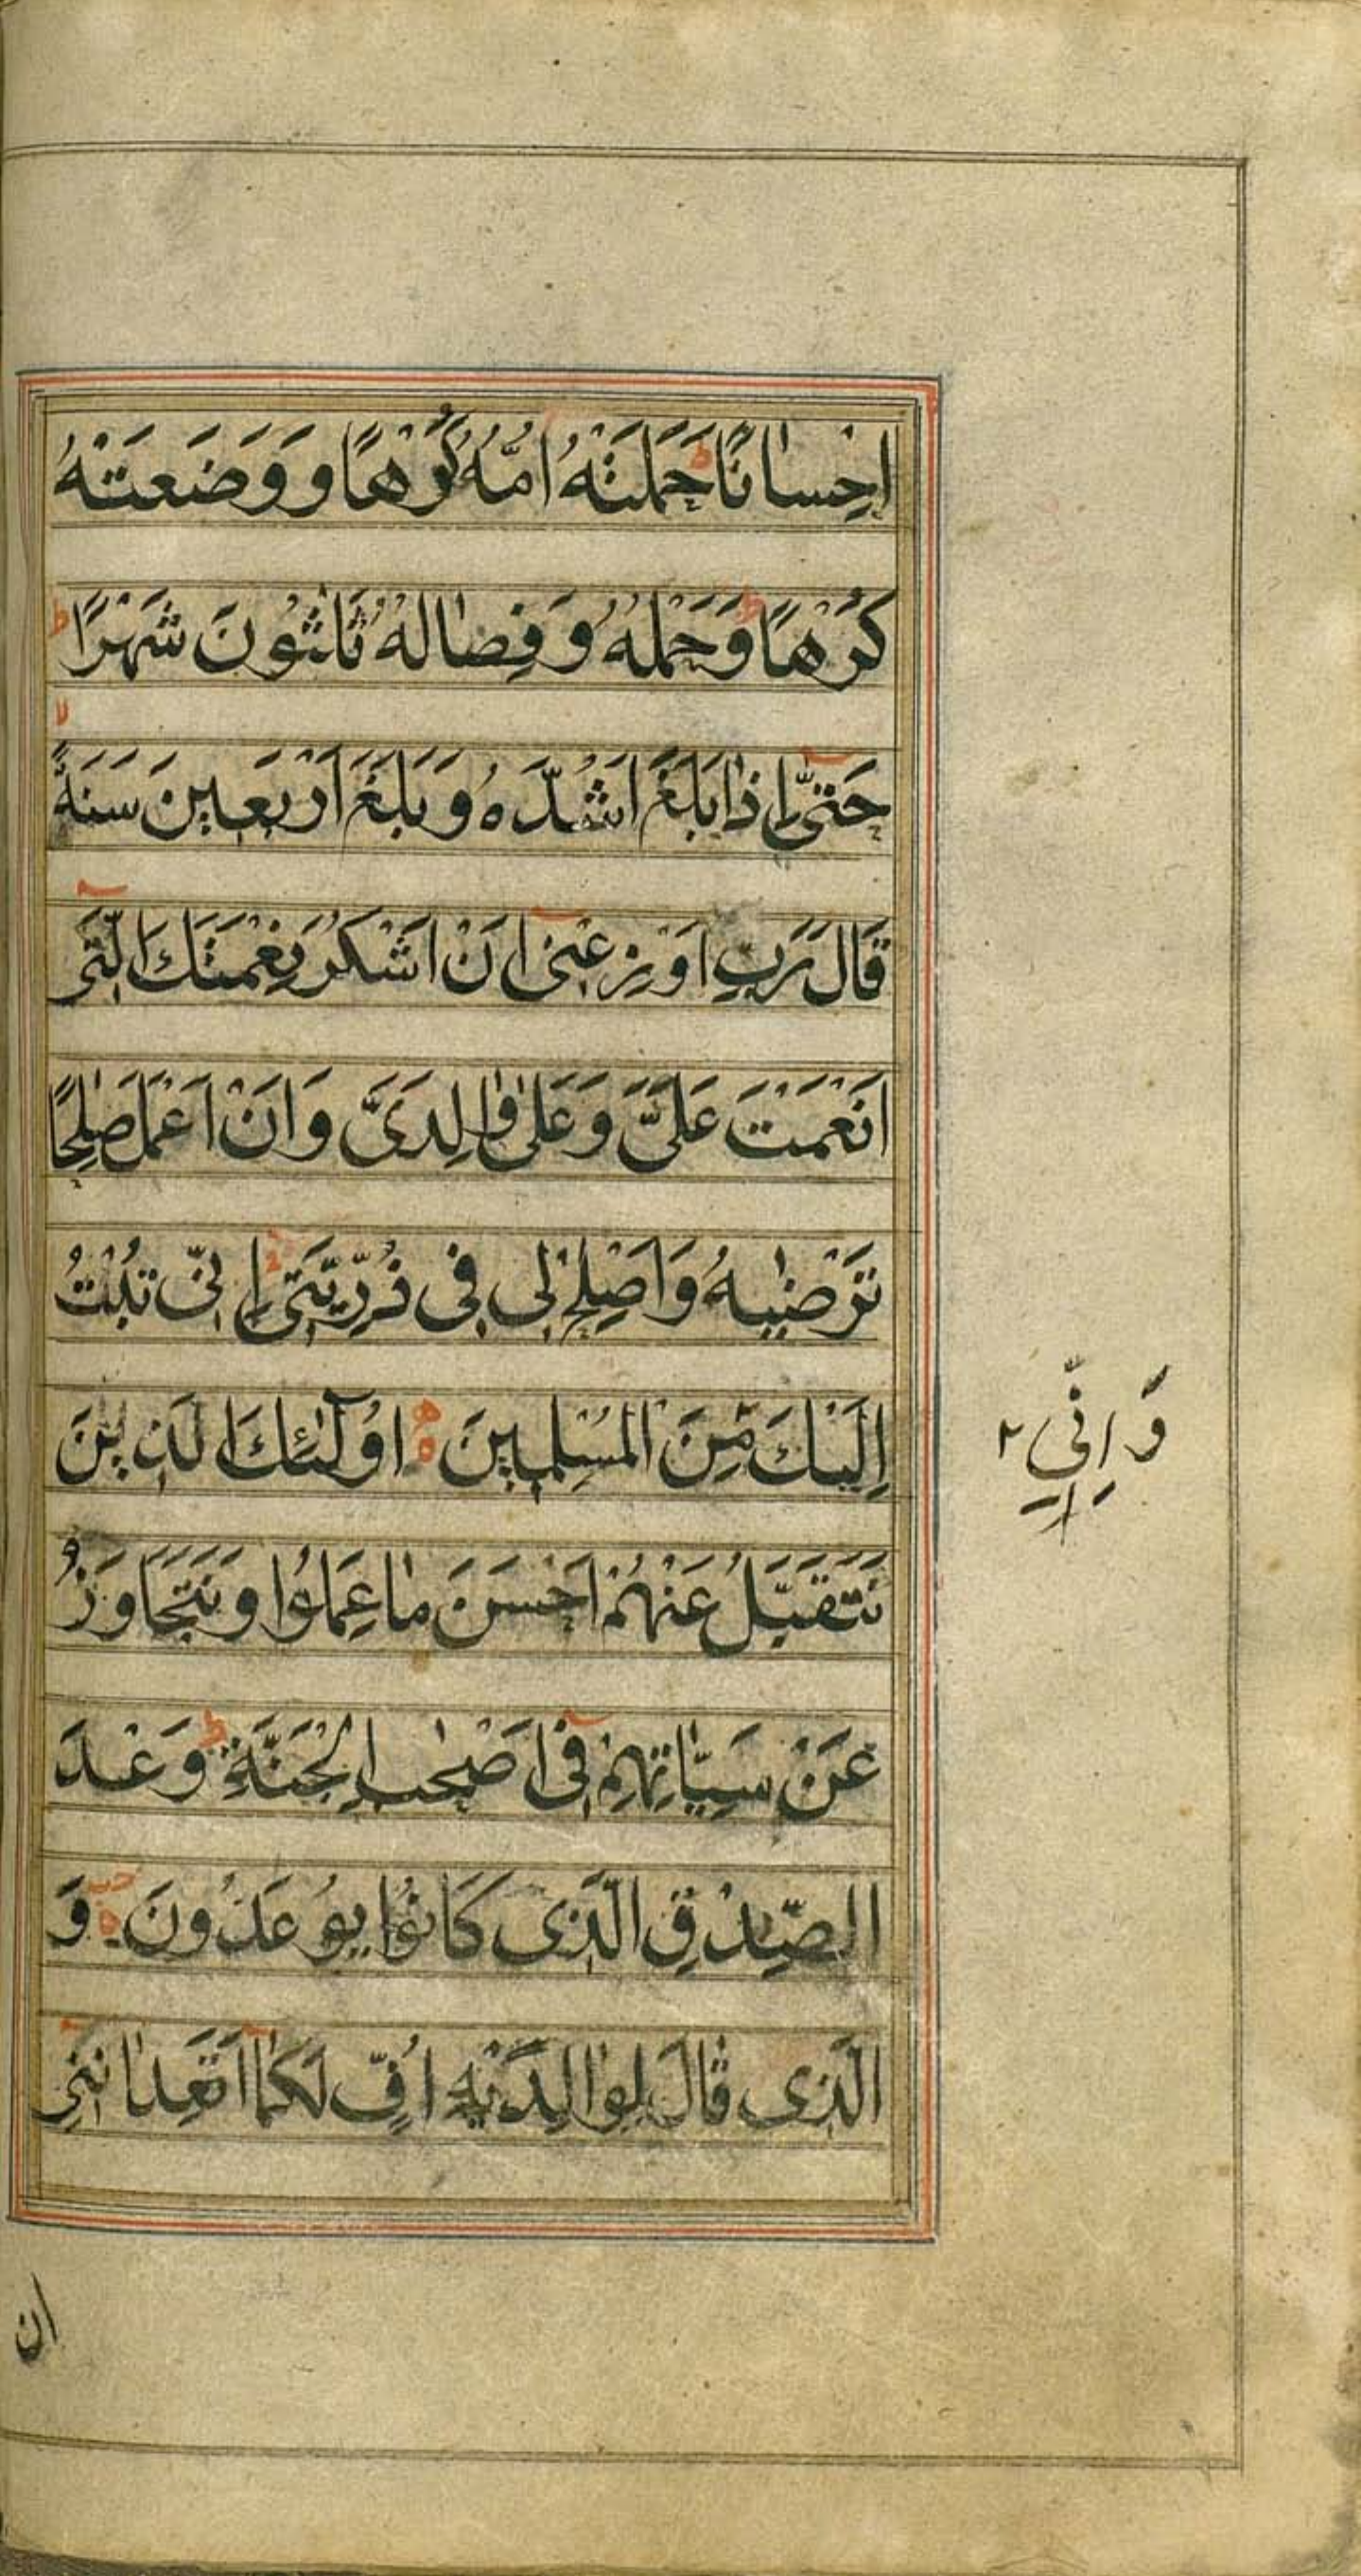 اِحْسٰانًا حَمَلَتْهُ اُمُّهُ كُرْهًا وَ وَضَعَتْهُ
كُرْهًا وَحَمْلُهُ وَ فِصٰالُهُ ثَلٰثُونَ شَهْرًا ط
لا
حَتّٰى اِذٰا بَلَغَ اَشُدَّهُ وَ بَلَغَ اَرْبَعِينَ سَنَةً
قَالَ رَبِّ اَوْزِعْنِى اَنْ اَشْكُرَ نِعْمَتَكَ الَّتِى
اَنْعَمْتَ عَلَىَّ وَ عَلٰى وٰالِدَىَّ وَ اَنْ اَعْمَلَ صٰلِحًا
تَرْضٰيهُ وَ اَصْلِحْ لِى فِى ذُرِّيَّتِى اِنِّى تُبْتُ
اِلَيْكَ مِنَ الْمُسْلِمِينَ ه اُولٰٓئِكَ الَّذِينَ
وَ اِنِّى ۲
نَتَقَبَّلُ عَنْهُمْ اَحْسَنَ مٰا عَمِلُوا وَ نَتَجَاوَزُ
عَنْ سَيِّاٰتِهِمْ فِى اَصْحٰبِ الْجَنَّةِ ط وَعْدَ
الصِّدْقِ الَّذِى كَانُوا يُوعَدُونَ ه وَ
الَّذِى قٰالَ لِوٰالِدَيْهِ اُفٍّ لَكُمٰا اَتَعِدٰانِنِى
ان